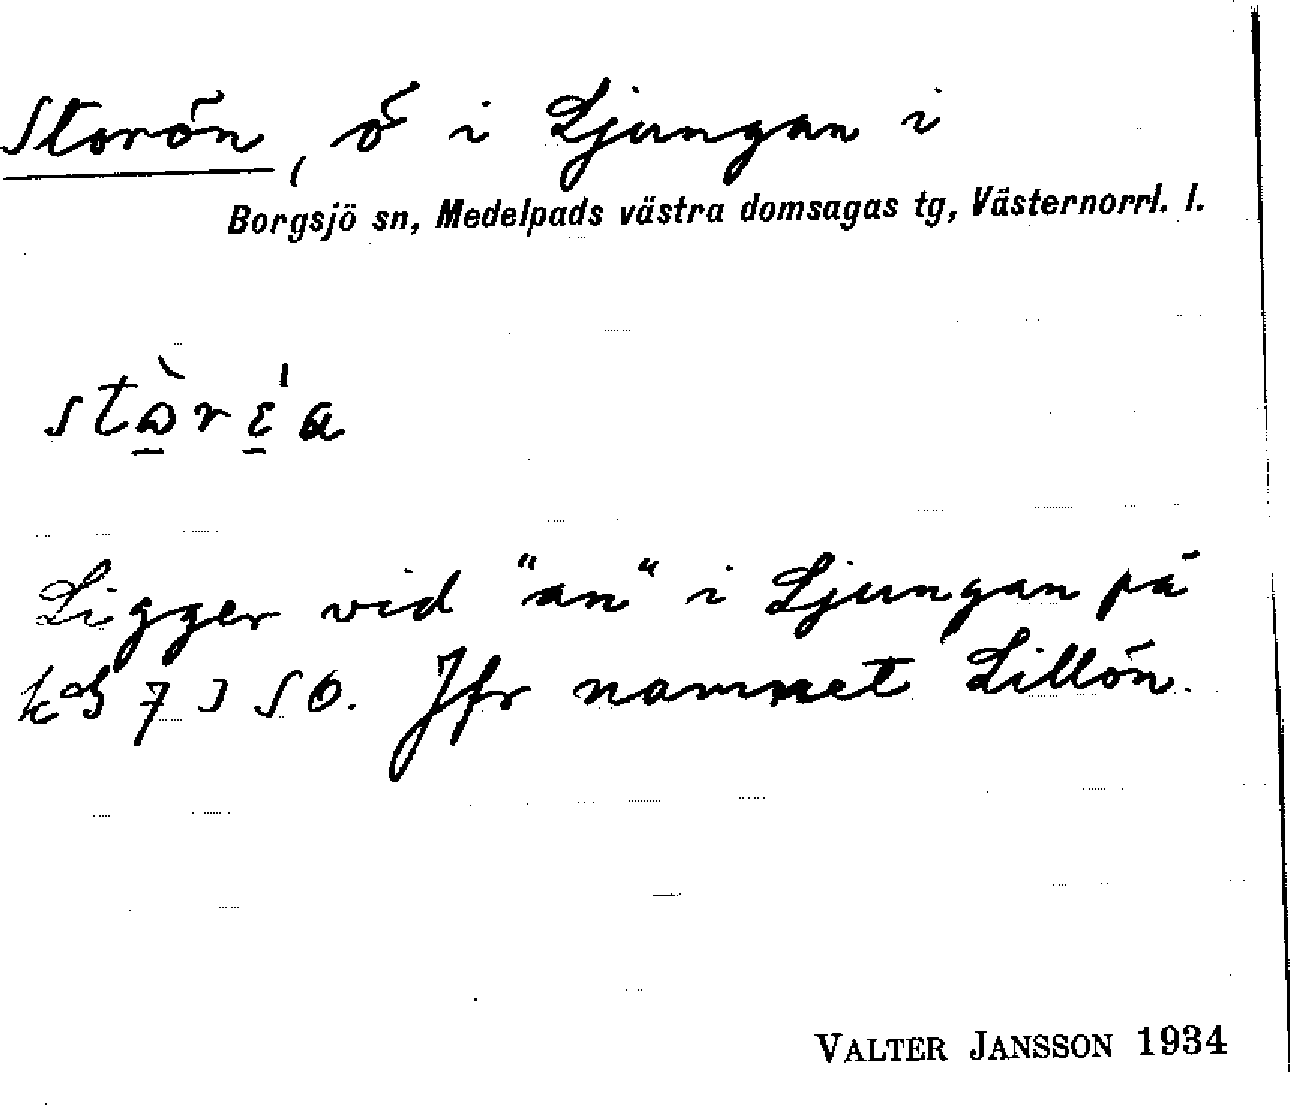 Storön, ö i Ljungan i
Borgsjö sn, Medelpads västra domsagas tg, Västernorrl. l.
Ligger vid "an" i Ljungan på
Jfr namnet Lillön.
VALTER JANSSON 1934